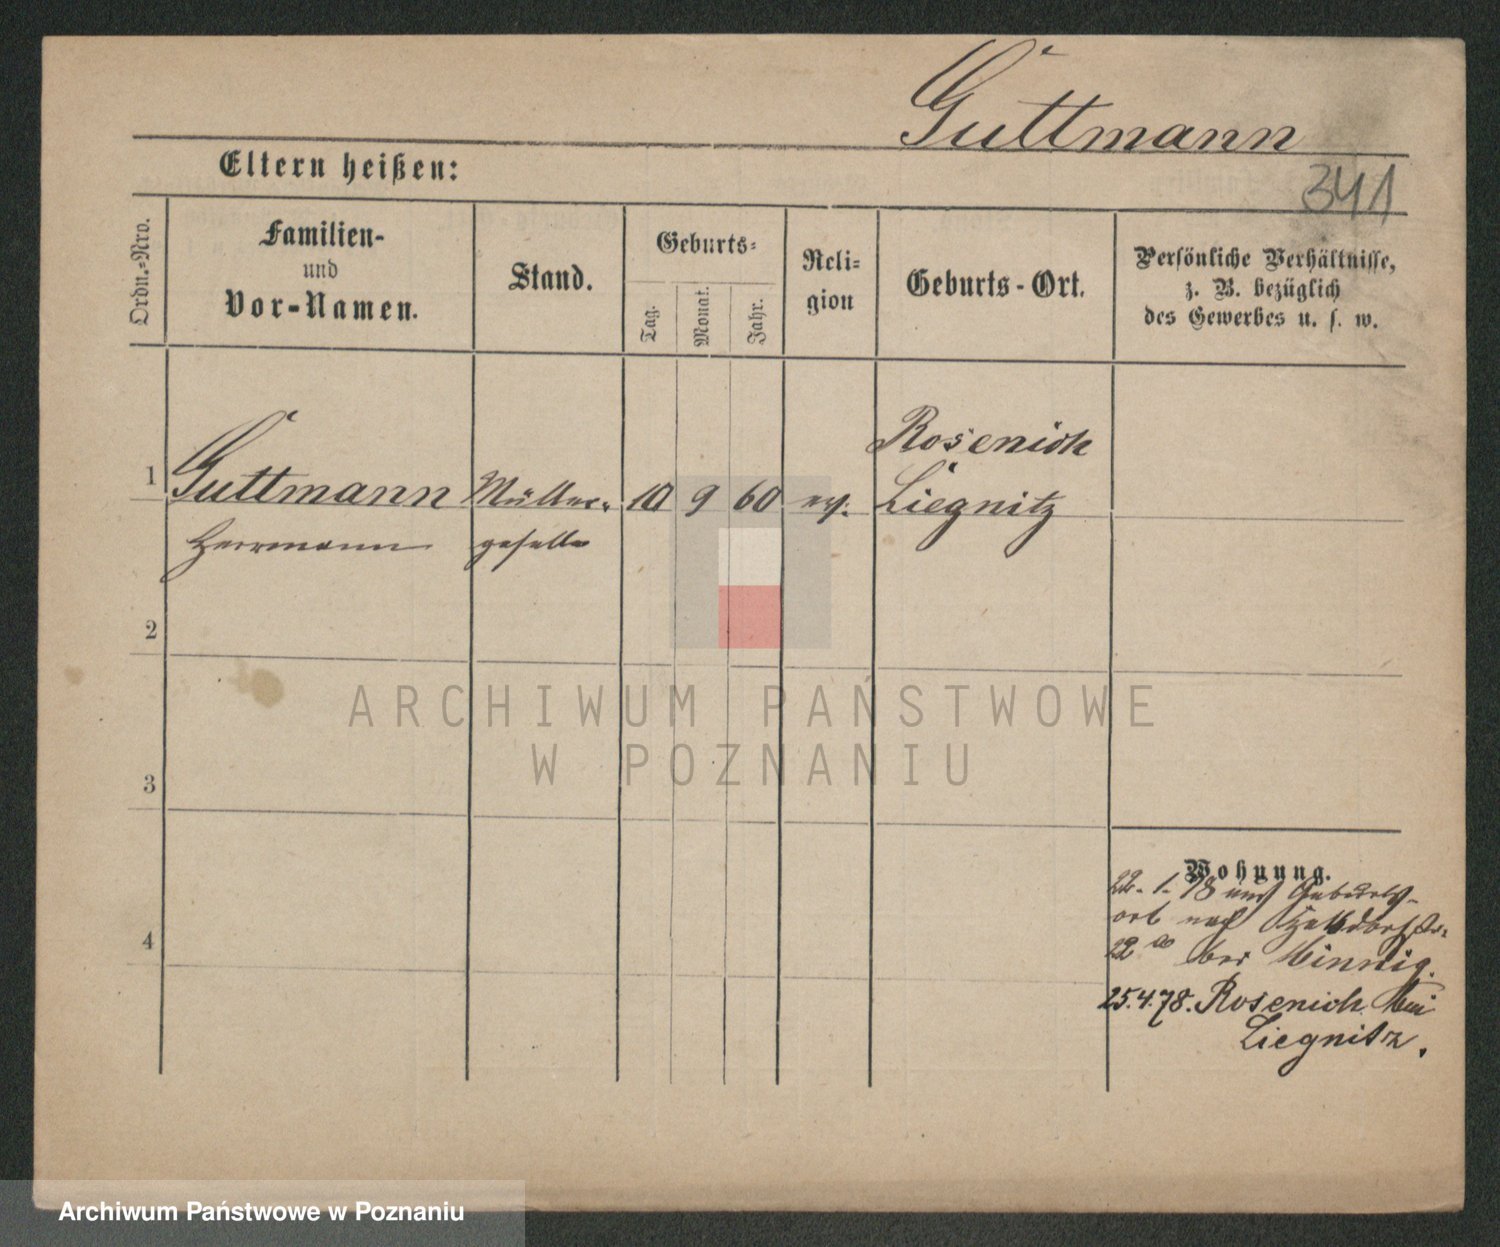 Guttmann
Eltern heißen:
341
Ordn.-Nro.
Familien-
und
Vor-Namen.
Stand.
Geburts-
Tag.
Monat.
Jahr.
Reli-
gion
Geburts-Ort.
Persönliche Verhältnisse,
z. B. bezüglich
des Gewerbes u. s. w.
Rosenich
1 Guttmann Müller- 10 9 60 ev. Liegnitz
Herrmann geselle
2
3
4
Wohnung.
22. 1. 78 aus Geburts-
ort nach
22 a bei Minnig.
25.4.78. Rosenich bei
Liegnitz.
ARCHIWUM PAŃSTWOWE
W POZNANIU
Archiwum Państwowe w Poznaniu